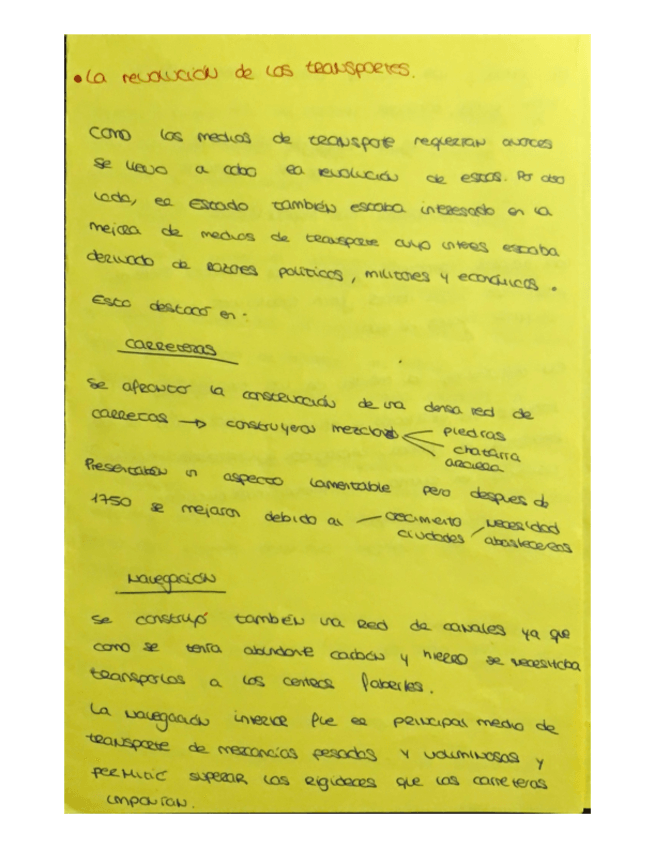 • La revolución de los transportes.
Como los medios de transpote requerian avances
se llevo a cabo la revolución de estos. Por otro
lado, el Estado también estaba interesado en la
mejora de medios de transporte cuyo interes estaba
derivado de razones politicas, militares y económicas.
Esto destacó en:
Carreteras
Se afrontó la construcción de una densa red de
carretas → construyeron mezclando piedras
chatarra
arcilla
Presentaban un aspecto lamentable pero despues de
1750 se mejoraron debido al crecimiento necesidad
ciudades abastecerlas
Navegación
Se construyó también una red de canales ya que
como se tenia abundante carbón y hierro se necesitaba
transportarlos a los centros fabriles.
La navegación interior fue el principal medio de
transporte de mercancias pesadas y voluminosas y
permitió superar las rigideces que las carreteras
imponian.